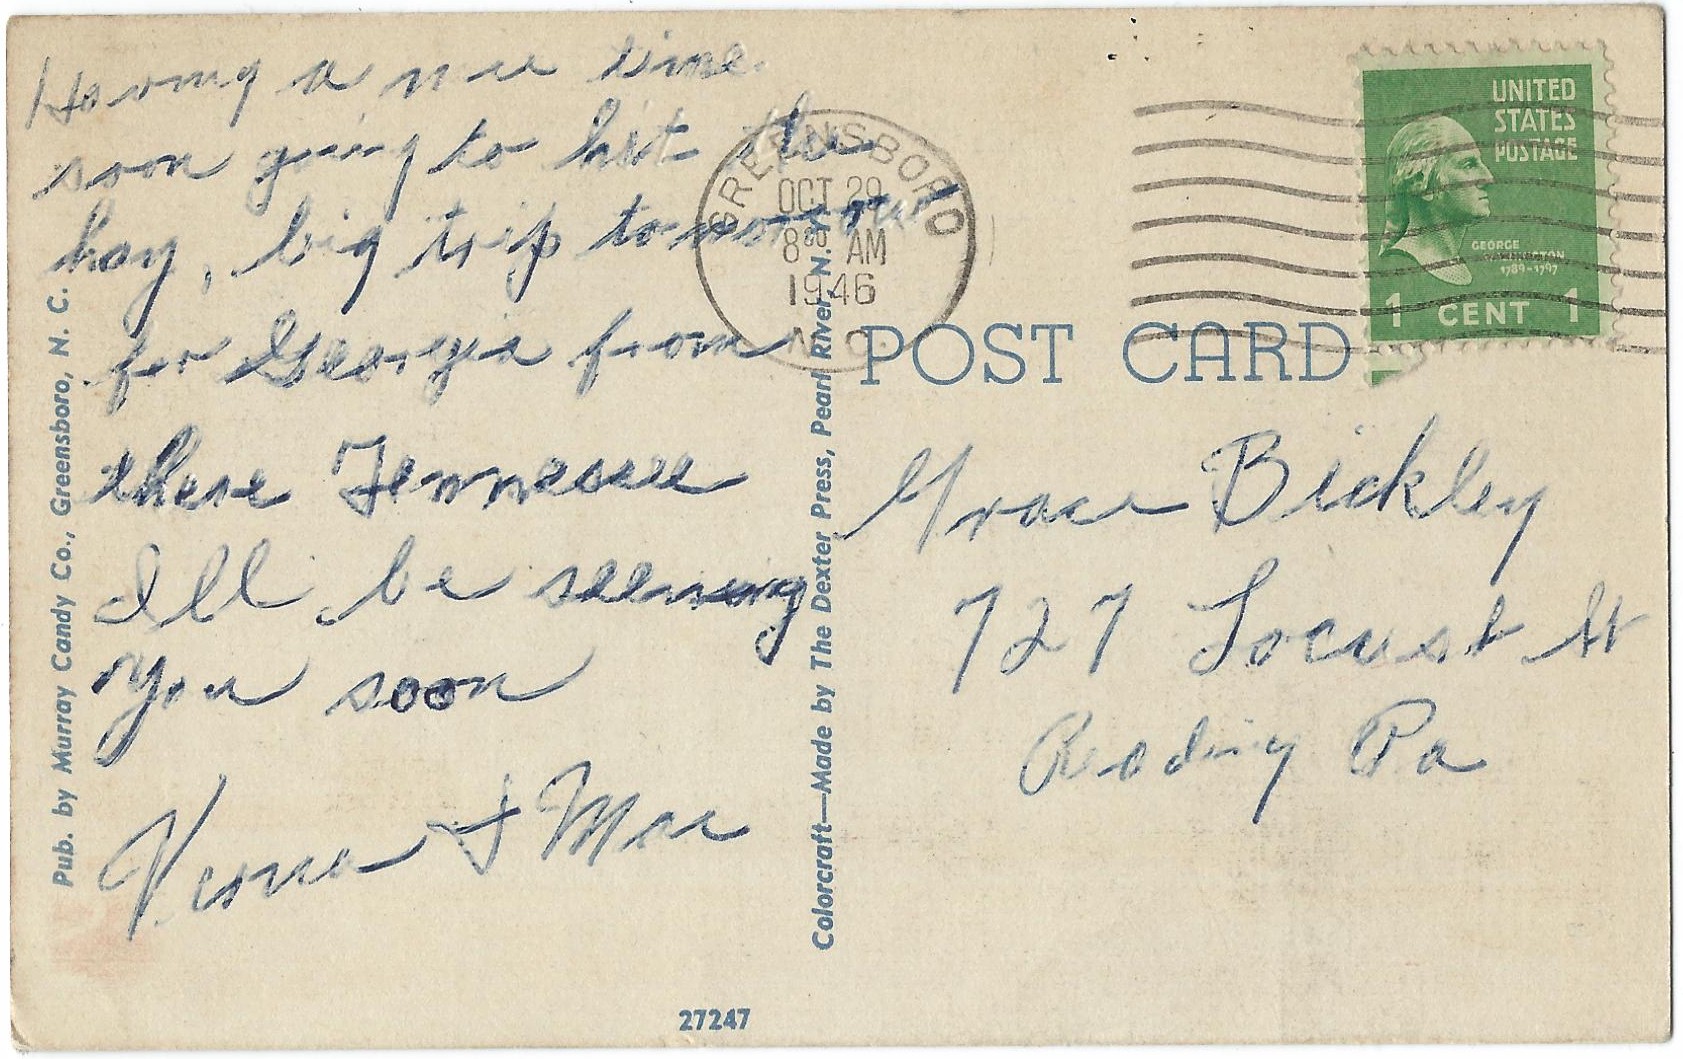 Having a nice time.
soon going to hit the
hay, big trip tomorrow
for Georgia from
there Tennessee
Ill be seeing
you soon
Verna & Mae
Pub. by Murray Candy Co., Greensboro, N. C.
Colorcraft—Made by The Dexter Press, Pearl River, N. Y.
27247
GREENSBORO
OCT 29
8 30 AM
1946
N.C.
UNITED
STATES
POSTAGE
GEORGE
WASHINGTON
1789-1797
1 CENT 1
POST CARD
Grace Bickley
727 Locust St
Reading Pa